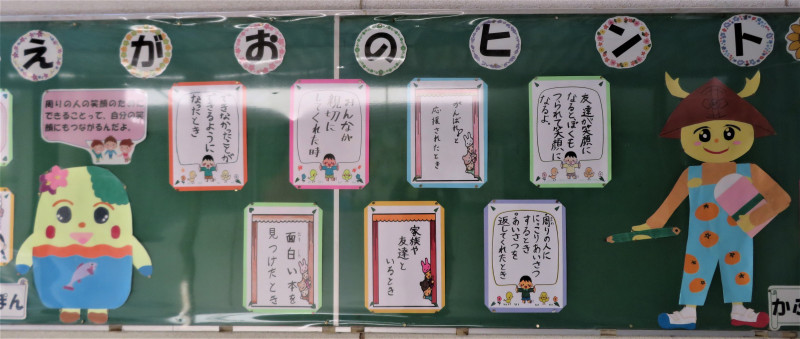 えがおのヒント
周りの人の笑顔のために
できることって、自分の笑
顔にもつながるんだよ。
できなかったことが
できるように
なったとき
みんなが
親切に
してくれた時
がんばれと
応援されたとき
友達が笑顔に
なるとぼくも
つられて笑顔に
なるよ。
面白い本を
見つけたとき
家族や
友達と
いるとき
周りの人に
にっこりあいさつ
するとき
あいさつを
返してくれたとき
ほん